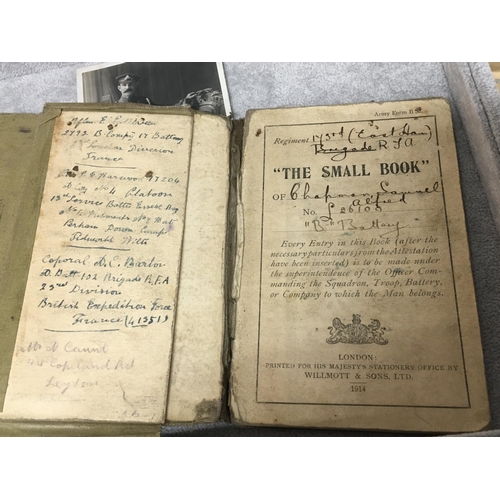 2793 B Compy 17 Battery
London Division
France
4 Platoon
13th Service Battn Essex Reg
Perham Down Camp
Tidworth Wilts
Coporal
D. Batt 152 Brigade R.F.A
23rd
Division
British Expedition Force
France (41351)
Mr
Copeland Rd
Leyton
Army Form B.
Regiment (East Han)
Brigade R F A
"THE SMALL BOOK"
OF Chapman, Samuel
Alfred
No. L 26108
"B" Battery
Every Entry in this Book (after the
necessary particulars from the Attestation
have been inserted) is to be made under
the superintendence of the Officer Com-
manding the Squadron, Troop, Battery,
or Company to which the Man belongs.
LONDON:
PRINTED FOR HIS MAJESTY'S STATIONERY OFFICE BY
WILLMOTT & SONS, LTD.
1914